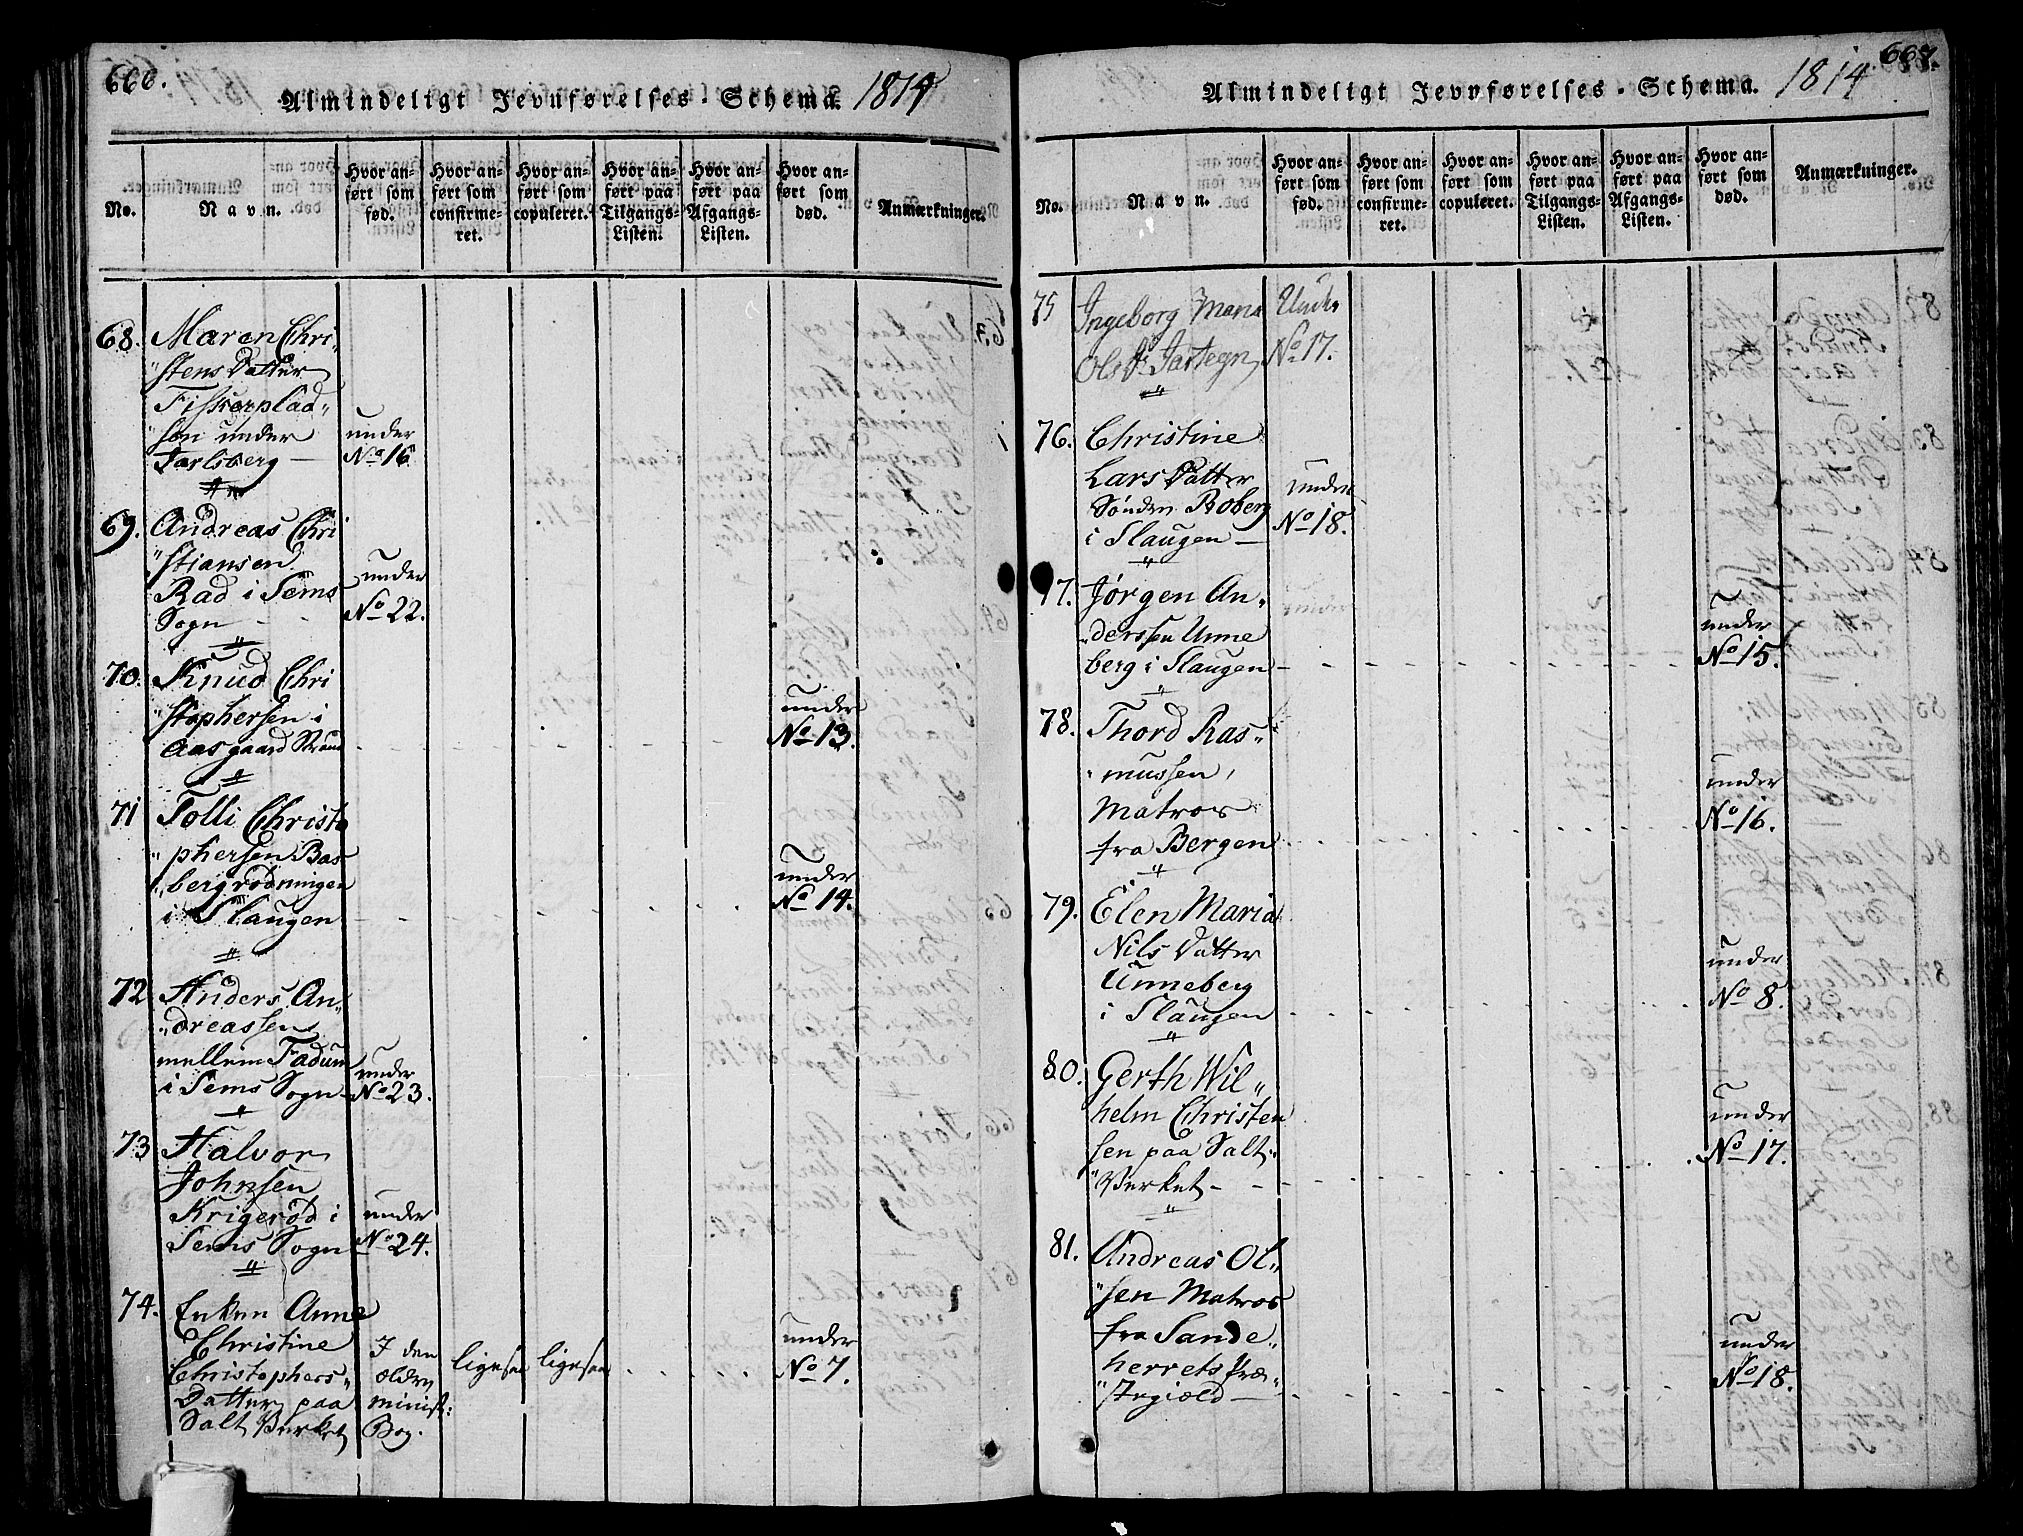 666.
Almindeligt Jevnførelses-Schema. 1814
No.
Navn.
Hvor an-
ført som
fød.
Hvor an-
ført som
confirme-
ret.
Hvor an-
ført som
copuleret.
Hvor an-
ført paa
Tilgangs-
Listen.
Hvor an-
ført paa
Afgangs-
Listen.
Hvor an-
ført som
død.
Anmærkninger.
68. Maren Chri-
stens Datter
Fiskerplad„
sen under
Jarlsberg —
under
No 16
69. Andreas Chri
„stiansen
Rad i Sems
Sogn
under
No 22.
70. Knud Chri
„stophersen i
Aasgaard Strand
under
No 13.
71 Tolli Christo
„phersen Bas
„bergrødningen
i Slaugen
under
No 14.
72 Anders An„
„dreassen
mellem Fadum
i Sems Sogn
under
No 23.
73 Halvor
Johnsen
Krigerød i
Sems Sogn
under
No 24.
74. Enken Anne
Christine
Christophers„
Datter paa
Salt Verket
I den
ældre
minist:
Bog.
ligesaa
ligesaa
under
No 7.
667.
Almindeligt Jevnførelses-Schema. 1814
No.
Navn.
Hvor an-
ført som
fød.
Hvor an-
ført som
confirme-
ret.
Hvor an-
ført som
copuleret.
Hvor an-
ført paa
Tilgangs-
Listen.
Hvor an-
ført paa
Afgangs-
Listen.
Hvor an-
ført som
død.
Anmærkninger.
75 Ingeborg Maria
Ols D. Jartegn
Under
No 17.
76. Christine
Lars Datter
Sønden Roberg
i Slaugen —
under
No 18.
77. Jørgen An„
„derssen Unne
berg i Slaugen
under
No 15.
78. Thord Ras„
„mussen,
Matros
fra Bergen
under
No 16.
79. Elen Maria
Nils Datter
Unneberg
i Slaugen
under
No 8.
80. Gerth Wil„
helm Christen
sen paa Salt„
„Verket
under
No 17.
81. Andreas Ol„
„sen Matros
fra Sande„
herrets Præ„
„stegiæld
under
No 18.